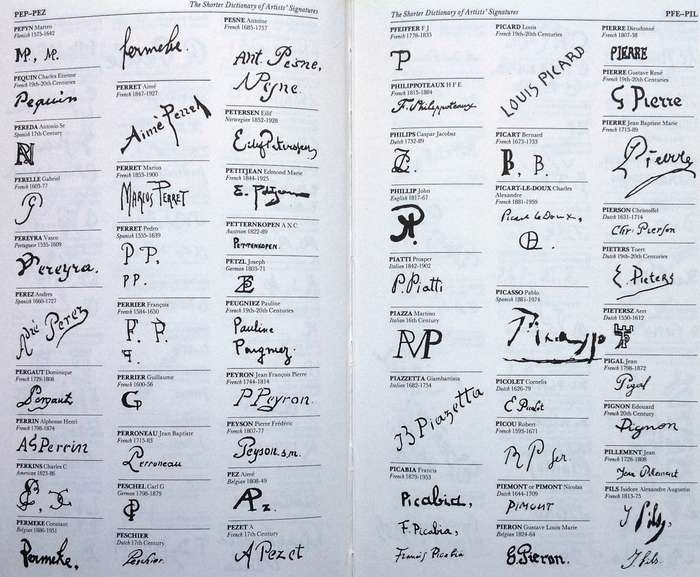 PEP–PEZ
The Shorter Dictionary of Artists' Signatures
PEPYN Marten
Flemish 1575-1642
M, M.
PEQUIN Charles Etienne
French 19th-20th Centuries
Pequin
PEREDA Antonio Sr
Spanish 17th Century
PERELLE Gabriel
French 1603-77
PEREYRA Vasco
Portuguese 1535-1609
Pereyra.
PEREZ Andres
Spanish 1660-1727
André Perez
PERGAUT Dominique
French 1729-1808
Pergaut
PERRIN Alphonse Henri
French 1798-1874
AS Perrin
PERKINS Charles C
American 1823-86
PERMEKE Constant
Belgian 1886-1951
Permeke.
Permeke.
PERRET Aimé
French 1847-1927
Aimé Perret
PERRET Marius
French 1853-1900
MARIUS PERRET
PERRET Pedro
Spanish 1555-1639
PP,
PP.
PERRIER François
French 1584-1650
F. P.
PERRIER Guillaume
French 1600-56
PERRONEAU Jean Baptiste
French 1715-83
Perroneau
PESCHEL Carl G
German 1798-1879
PESCHIER
Dutch 17th Century
Peschier.
PESNE Antoine
French 1683-1757
Ant. Pesne,
Pesne.
PETERSEN Eilif
Norwegian 1852-1928
Eilif Petersen
PETITJEAN Edmond Marie
French 1844-1925
E. Petitjean
PETTERNKOPEN A X C
Austrian 1822-89
PETTENKOPEN.
PETZL Joseph
German 1803-71
PEUGNIEZ Pauline
French 19th-20th Centuries
Pauline
Peugniez.
PEYRON Jean François Pierre
French 1744-1814
P. Peyron.
PEYSON Pierre Frédéric
French 1807-77
Peyson.
PEZ Aimé
Belgian 1808-49
APz.
PEZET A
French 17th Century
A Pezet
The Shorter Dictionary of Artists' Signatures
PFE–PIL
PFEIFER F J
French 1778-1835
P
PHILIPPOTEAUX H F E
French 1815-1884
F. Philippoteaux
PHILIPS Caspar Jacobsz
Dutch 1732-89
PHILLIP John
English 1817-67
PIATTI Prosper
Italian 1842-1902
P. Piatti
PIAZZA Martino
Italian 16th Century
PIAZZETTA Giambattista
Italian 1682-1754
Piazetta
PICABIA Francis
French 1879-1953
Picabia,
F. Picabia,
Francis Picabia
PICARD Louis
French 19th-20th Centuries
LOUIS PICARD
PICART Bernard
French 1673-1733
B, B.
PICART-LE-DOUX Charles
Alexandre
French 1881-1959
Picart le Doux,
PICASSO Pablo
Spanish 1881-1974
PICOLET Cornelis
Dutch 1626-79
C Picolet
PICOU Robert
French 1593-1671
PIEMONT or PIMONT Nicolas
Dutch 1644-1709
PIMONT
PIERON Gustave Louis Marie
Belgian 1824-64
G. Pieron.
PIERRE Dieudonné
French 1807-38
PIERRE
PIERRE Gustave René
French 19th-20th Centuries
G Pierre
PIERRE Jean Baptiste Marie
French 1713-89
Pierre
PIERSON Christoffel
Dutch 1631-1714
Chr. Pierson
PIETERS Toert
Dutch 19th-20th Centuries
E. Pieters
PIETERSZ Aert
Dutch 1550-1612
PIGAL Jean
French 1798-1872
Pigal
PIGNON Edouard
French 20th Century
Pignon
PILLEMENT Jean
French 1728-1808
Jean Pillement
PILS Isidore Alexandre Augustin
French 1813-75
J Pils,
J. Pils.